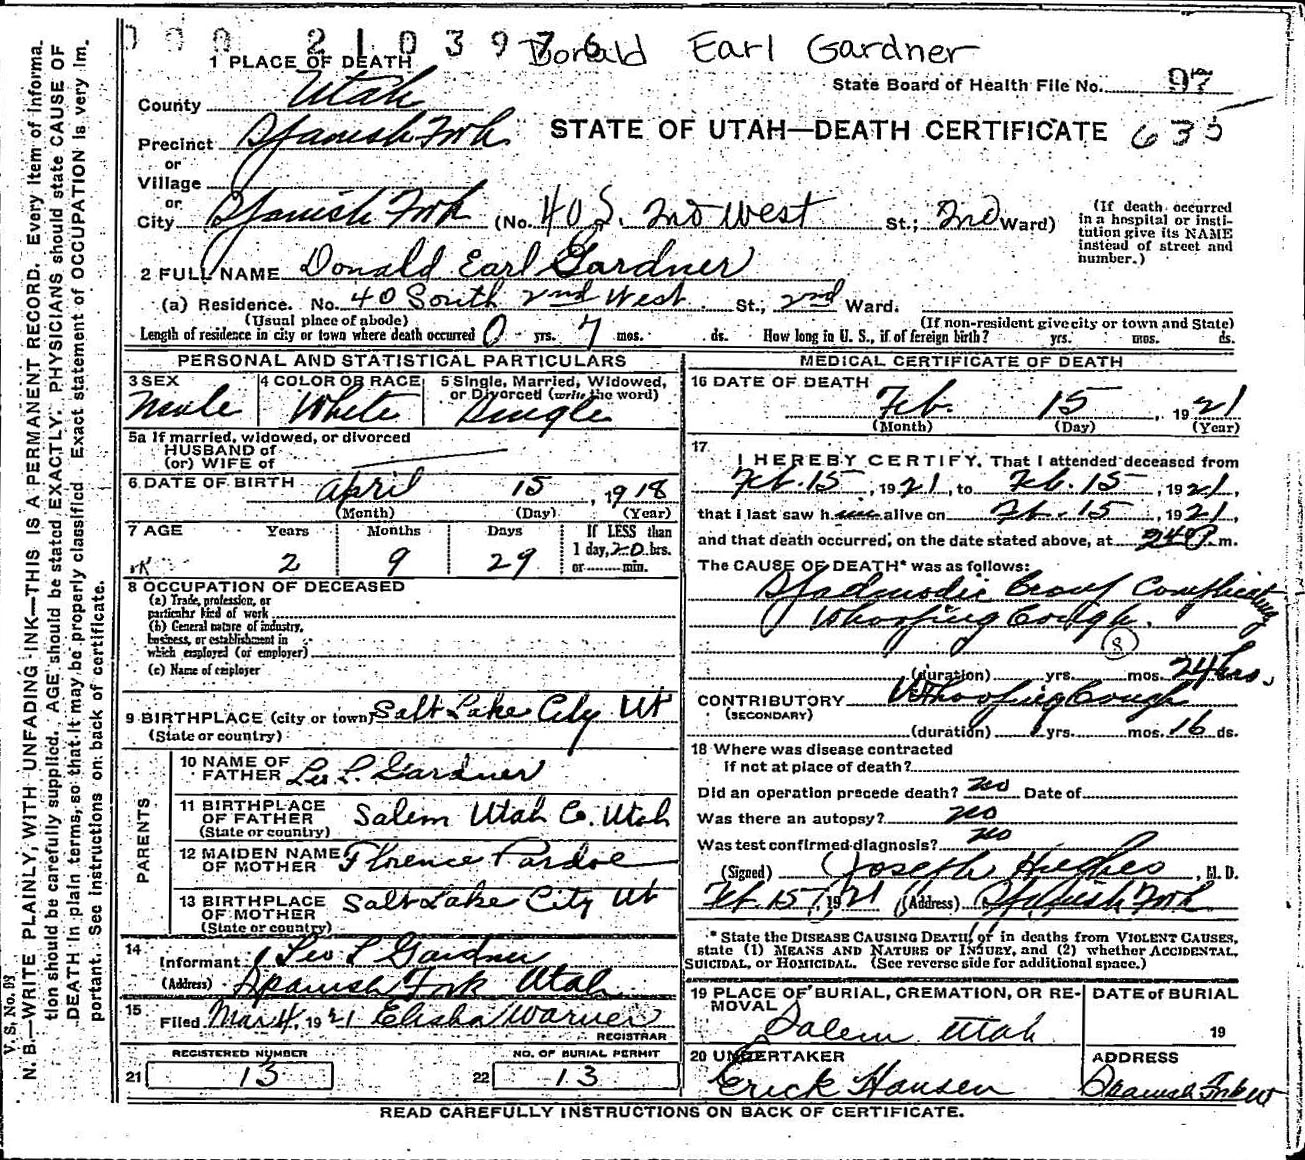 000 2103976 Donald Earl Gardner
1 PLACE OF DEATH
State Board of Health File No. 97
County Utah
STATE OF UTAH—DEATH CERTIFICATE 635
Precinct Spanish Fork
or
Village
or
City Spanish Fork (No. 40 S. 2nd West St.; 2nd Ward)
(If death occurred in a hospital or insti-
tution give its NAME
instead of street and
number.)
2 FULL NAME Donald Earl Gardner
(a) Residence. No. 40 South 2nd West St., 2nd Ward.
(Usual place of abode) (If non-resident give city or town and State)
Length of residence in city or town where death occurred 0 yrs. 7 mos. ds. How long in U. S., if of foreign birth? yrs. mos. ds.
PERSONAL AND STATISTICAL PARTICULARS
3 SEX Male
4 COLOR OR RACE White
5 Single, Married, Widowed, or Divorced (write the word) Single
5a If married, widowed, or divorced
HUSBAND of
(or) WIFE of
6 DATE OF BIRTH April 15, 1918
(Month) (Day) (Year)
7 AGE Years Months Days If LESS than
2 9 29 1 day, 20 hrs.
or min.
8 OCCUPATION OF DECEASED
(a) Trade, profession, or
particular kind of work
(b) General nature of industry,
business, or establishment in
which employed (or employer)
(c) Name of employer
9 BIRTHPLACE (city or town) Salt Lake City Ut
(State or country)
PARENTS
10 NAME OF FATHER Leo L. Gardner
11 BIRTHPLACE OF FATHER Salem Utah Co. Utah
(State or country)
12 MAIDEN NAME OF MOTHER Florence Pardoe
13 BIRTHPLACE OF MOTHER Salt Lake City Ut
(State or country)
14 Informant Leo L Gardner
(Address) Spanish Fork Utah
15 Filed Mar 4, 1921 Elisha Warner
REGISTRAR
REGISTERED NUMBER
21 13
NO. OF BURIAL PERMIT
22 13
MEDICAL CERTIFICATE OF DEATH
16 DATE OF DEATH
Feb. 15, 1921
(Month) (Day) (Year)
17 I HEREBY CERTIFY, That I attended deceased from
Feb. 15, 1921, to Feb. 15, 1921,
that I last saw him alive on Feb. 15, 1921,
and that death occurred, on the date stated above, at P.m.
The CAUSE OF DEATH* was as follows:
Spasmodic Croup Complicating
Whooping Cough.
8
(duration) yrs. mos. 24 hrs.
CONTRIBUTORY Whooping Cough
(SECONDARY)
(duration) yrs. mos. 16 ds.
18 Where was disease contracted
if not at place of death?
Did an operation precede death? no Date of
Was there an autopsy? no
Was test confirmed diagnosis? no
(Signed) Joseph Hughes, M. D.
Feb. 15, 1921 (Address) Spanish Fork
* State the DISEASE CAUSING DEATH, or in deaths from VIOLENT CAUSES,
state (1) MEANS AND NATURE OF INJURY, and (2) whether ACCIDENTAL,
SUICIDAL, or HOMICIDAL. (See reverse side for additional space.)
19 PLACE OF BURIAL, CREMATION, OR RE-
MOVAL
Salem Utah
DATE of BURIAL
19
20 UNDERTAKER
Erick Hansen
ADDRESS
Spanish Fork Ut
READ CAREFULLY INSTRUCTIONS ON BACK OF CERTIFICATE.
V. S. No. B3
N. B.—WRITE PLAINLY, WITH UNFADING INK—THIS IS A PERMANENT RECORD. Every item of informa-
tion should be carefully supplied. AGE should be stated EXACTLY. PHYSICIANS should state CAUSE OF
DEATH in plain terms, so that it may be properly classified. Exact statement of OCCUPATION is very im-
portant. See instructions on back of certificate.